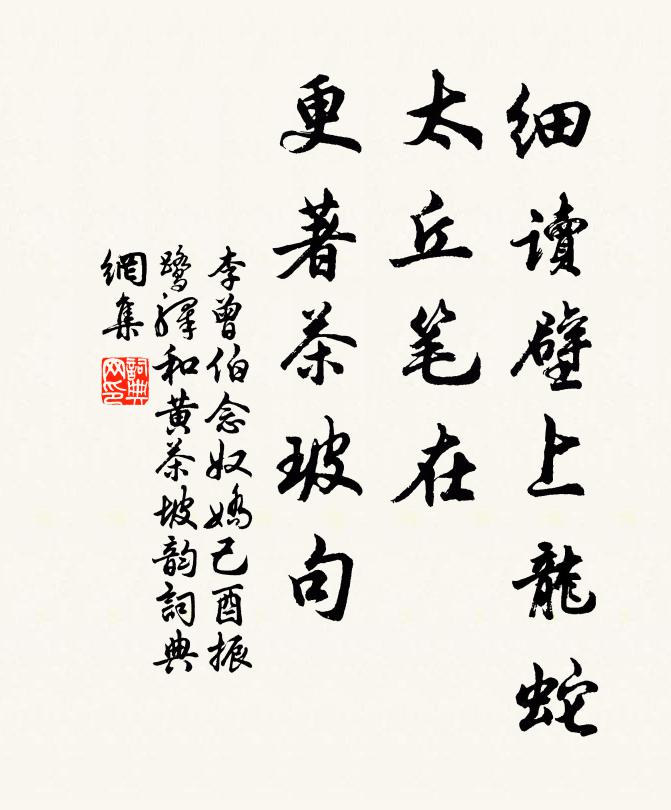 细读壁上龍蛇
太丘笔在
更著茶玻句
李曾伯念奴嬌己酉振
鹭驛和黄茶坡韵詞典
網集
詞典网印